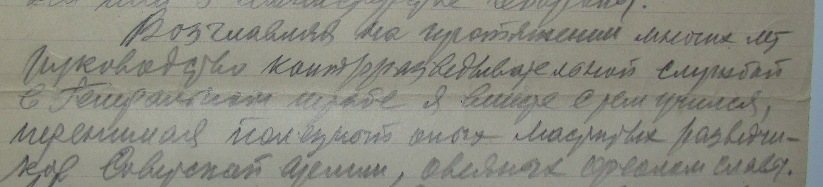 Возглавляя на протяжении многих лет
руководство контрразведывательной службой
в Генеральном штабе я вместе с тем учился,
перенимая полезный опыт мастеров разведчи-
ков Советской Армии, овеяных ореолом славы.